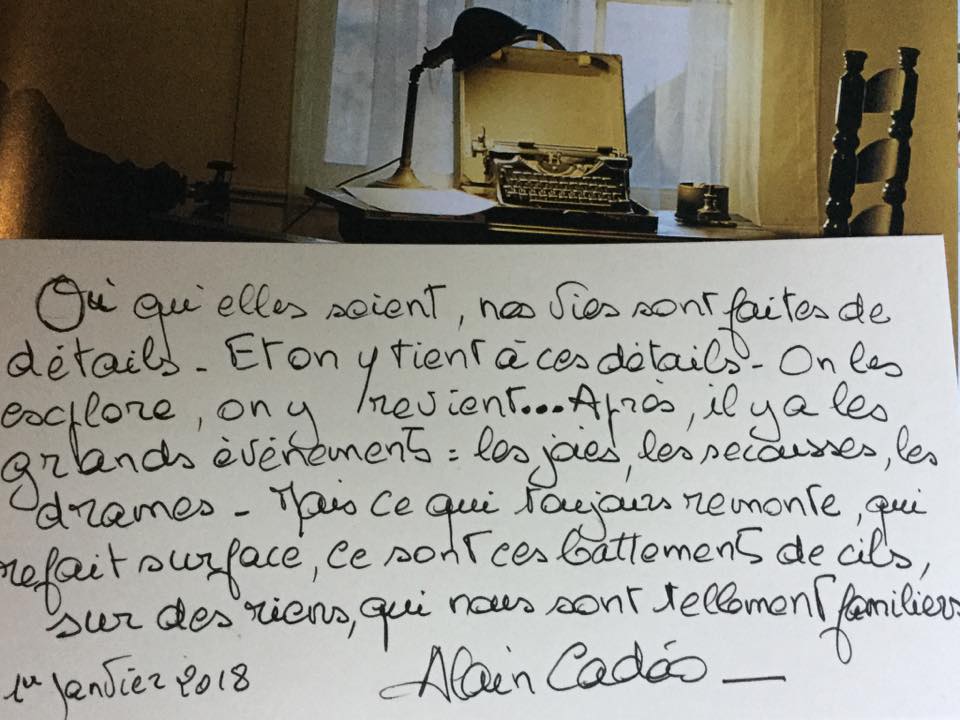 Où qu'elles soient, nos vies sont faites de
détails - Et on y tient à ces détails - On les
explore, on y revient... Après, il y a les
grands événements : les joies, les secousses, les
drames - Mais ce qui toujours remonte, qui
refait surface, ce sont ces battements de cils,
sur des riens, qui nous sont tellement familiers
1er janvier 2018
Alain Cadéo